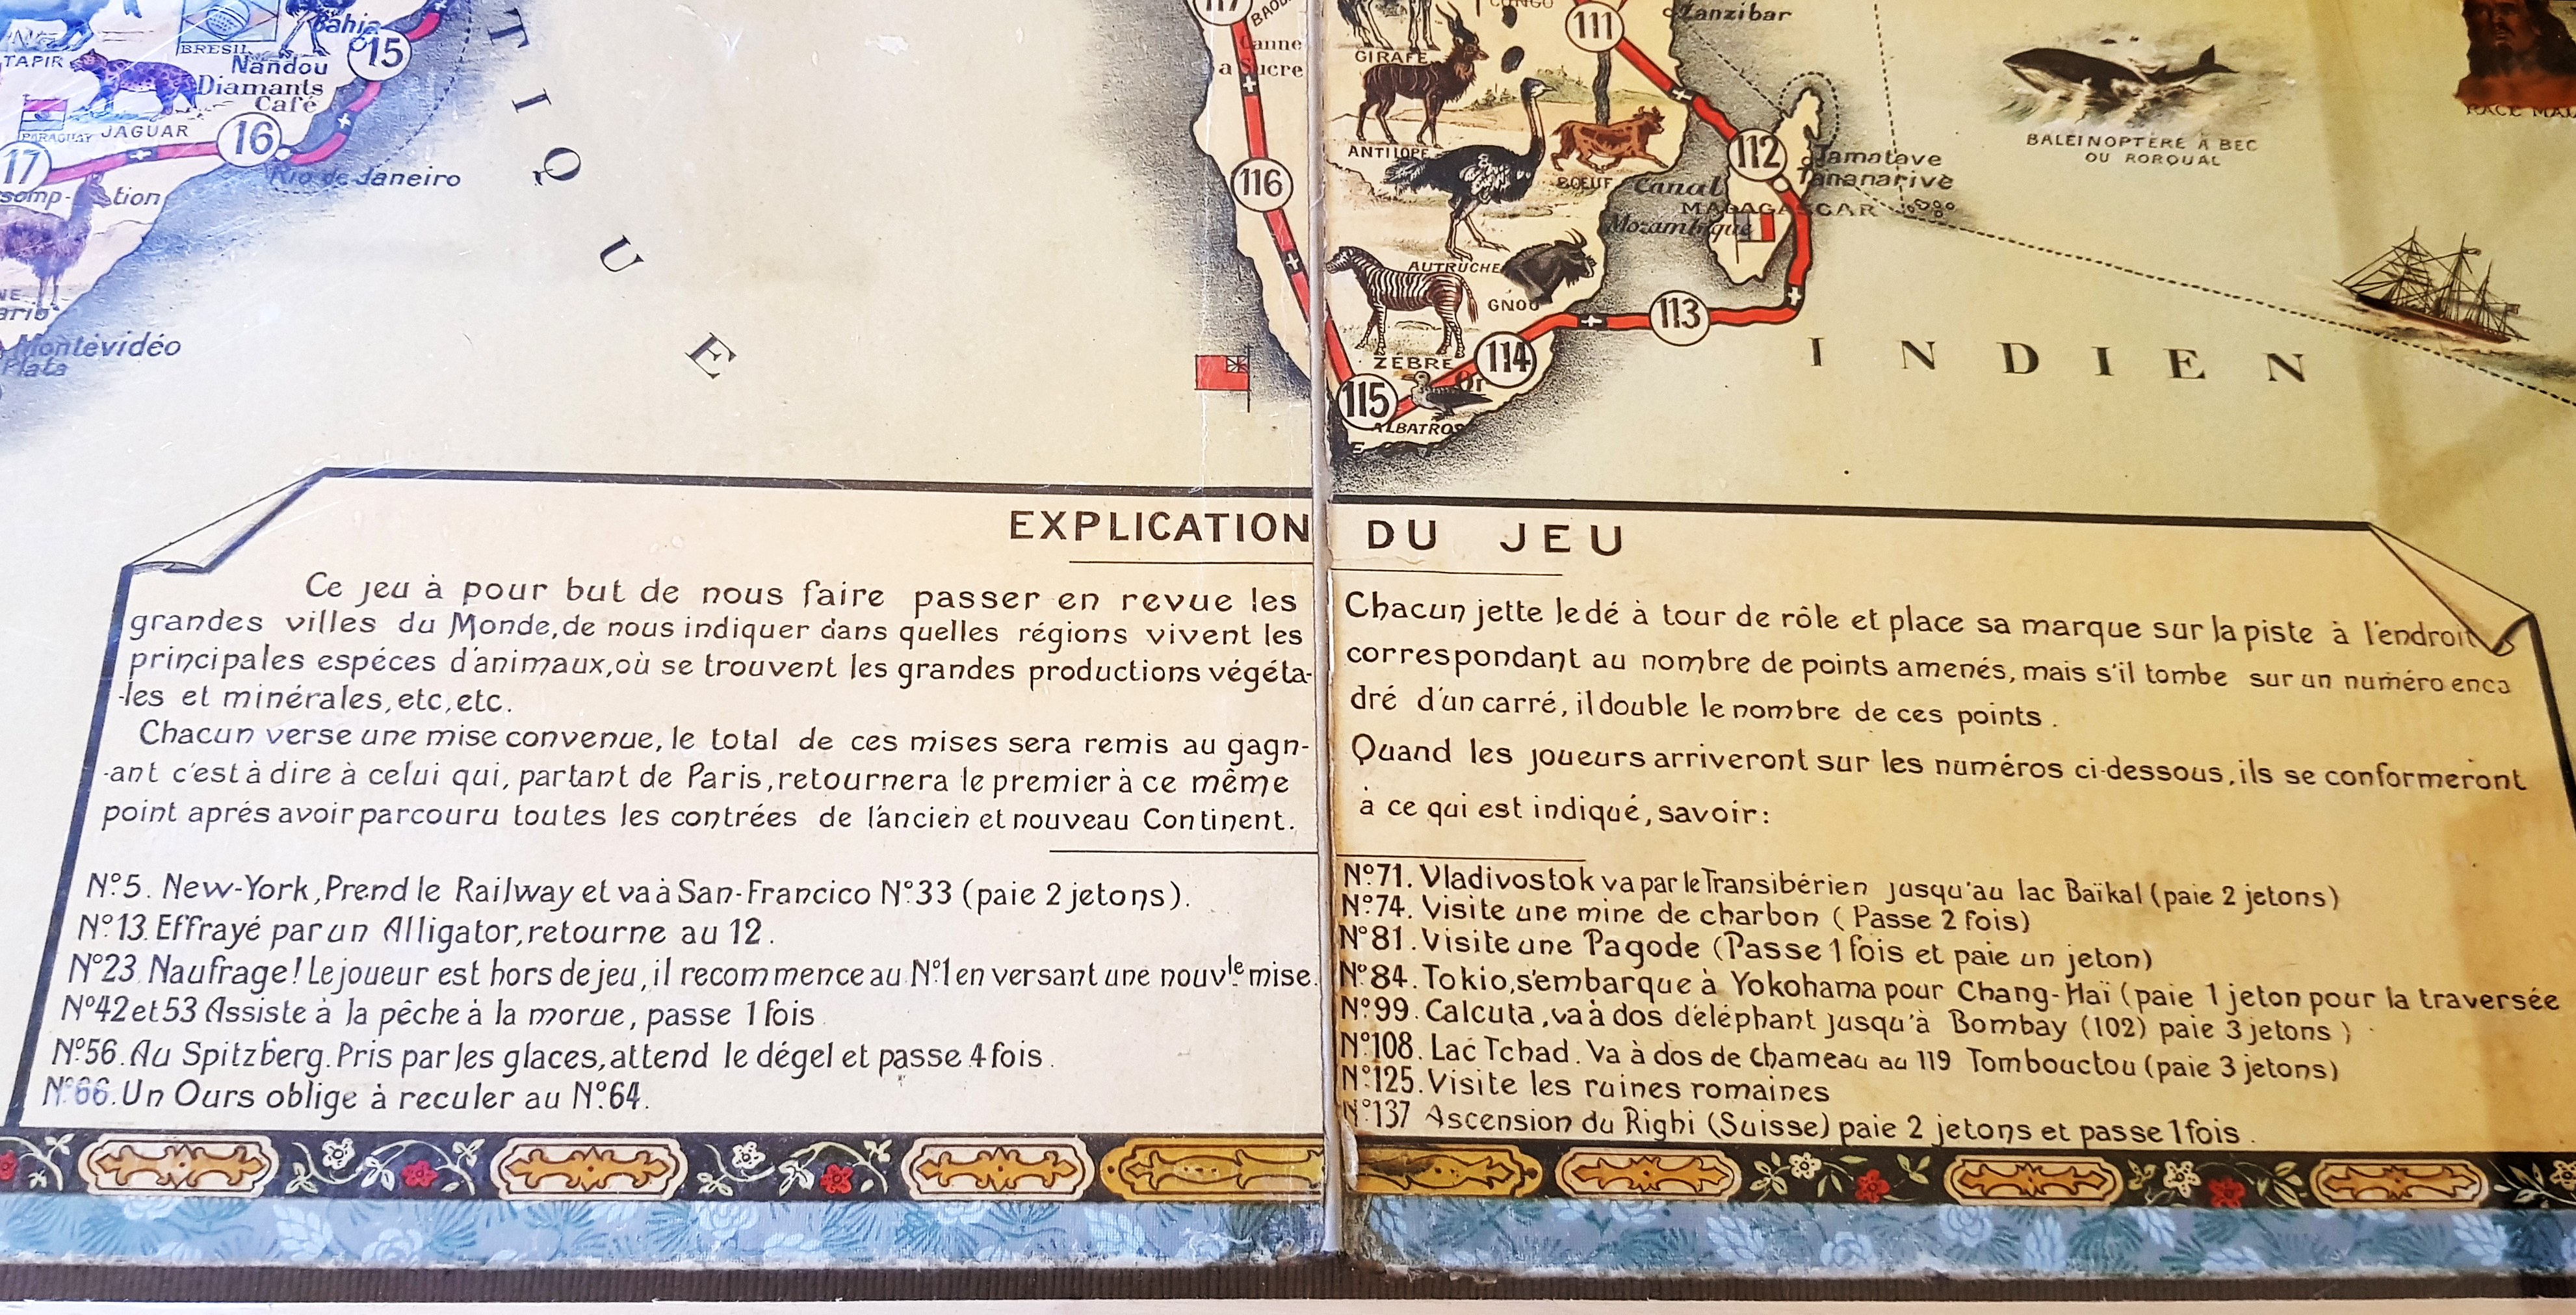 Bahia
15
BRESIL
TAPIR
Nandou
Diamants
Café
PARAGUAY
JAGUAR
16
17
Rio de Janeiro
somp-tion
Montévidéo
Plata
TIQUE
117
Canne
a Sucre
116
CONGO
111
Zanzibar
GIRAFE
ANTILOPE
BOEUF
112
Tamatave
Tananarive
Canal
MADAGASCAR
Mozambique
AUTRUCHE
GNOU
ZÈBRE
113
114
Or
115
ALBATROS
BALEINOPTÈRE À BEC
OU RORQUAL
INDIEN
RACE
EXPLICATION DU JEU
Ce jeu à pour but de nous faire passer en revue les
grandes villes du Monde, de nous indiquer dans quelles régions vivent les
principales espéces d'animaux, où se trouvent les grandes productions végéta-
-les et minérales, etc, etc.
Chacun verse une mise convenue, le total de ces mises sera remis au gagn-
-ant c'est à dire à celui qui, partant de Paris, retournera le premier à ce même
point aprés avoir parcouru toutes les contrées de l'ancien et nouveau Continent.
N° 5. New-York, Prend le Railway et va à San-Francico N° 33 (paie 2 jetons).
N° 13. Effrayé par un Alligator, retourne au 12.
N° 23. Naufrage! Le joueur est hors de jeu, il recommence au N° 1 en versant une nouvle mise.
N° 42 et 53 Assiste à la pêche à la morue, passe 1 fois
N° 56. Au Spitzberg. Pris par les glaces, attend le dégel et passe 4 fois.
N° 66. Un Ours oblige à reculer au N° 64.
Chacun jette le dé à tour de rôle et place sa marque sur la piste à l'endroit
correspondant au nombre de points amenés, mais s'il tombe sur un numéro enca
dré d'un carré, il double le nombre de ces points.
Quand les joueurs arriveront sur les numéros ci-dessous, ils se conformeront
à ce qui est indiqué, savoir:
N° 71. Vladivostok va par le Transibérien jusqu'au lac Baïkal (paie 2 jetons)
N° 74. Visite une mine de charbon (Passe 2 fois)
N° 81. Visite une Pagode (Passe 1 fois et paie un jeton)
N° 84. Tokio, s'embarque à Yokohama pour Chang-Haï (paie 1 jeton pour la traversée
N° 99. Calcuta, va à dos d'éléphant jusqu'à Bombay (102) paie 3 jetons)
N° 108. Lac Tchad. Va à dos de Chameau au 119 Tombouctou (paie 3 jetons)
N° 125. Visite les ruines romaines
N° 137 Ascension du Righi (Suisse) paie 2 jetons et passe 1 fois.